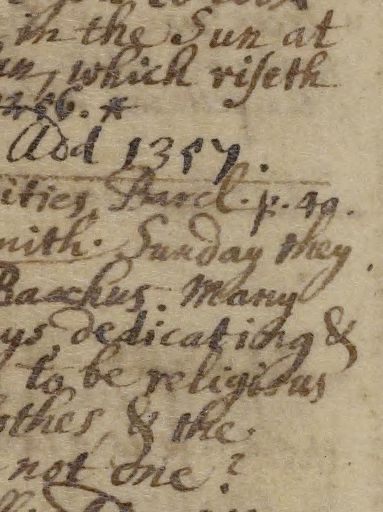 in the Sun at
which riseth
Add 1357.
ities, Barcl. p. 49.
nith. Sunday they
Bacchus. Many
ys, dedicating &
to be religious
othes, & the
not one?